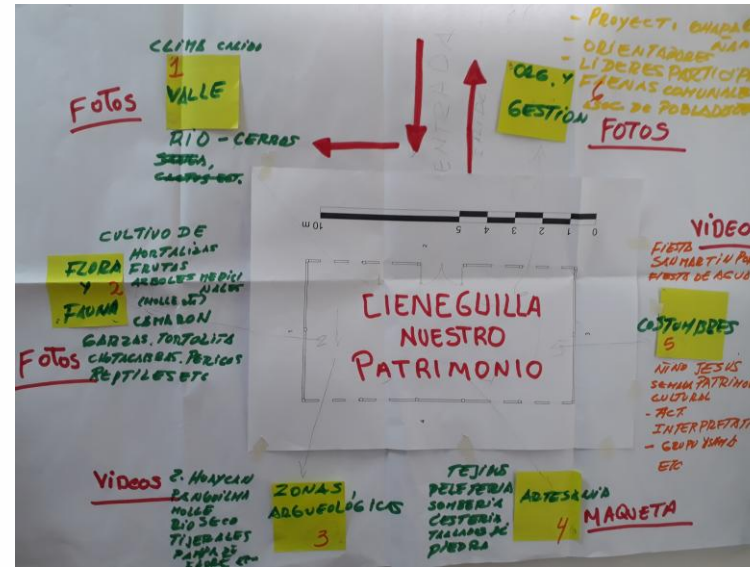 CLIMA CALIDO
1
VALLE
FOTOS
RIO - CERROS
CACTUS ECT.
ENTRADA
- PROYECT.
- ORIENTADORES
- LIDERES PARTICIP
FAENAS COMUNALE
ASOC. DE POBLADORE
ORG. Y
6
GESTION
FOTOS
10 m
5
4
3
2
1
0
CIENEGUILLA
NUESTRO
PATRIMONIO
CULTIVO DE
HORTALIZAS
FRUTAS
ARBOLES MEDICI
NALES
(MOLLE
CAMARON
FLORA
Y 2
FAUNA
GARZAS. TORTOLITA
PERICOS
REPTILES ETC
FOTOS
VIDEO
FIESTA
SAN MARTIN POR
FIESTA DE AGUA
COSTUMBRES
5
NIÑO JESUS
SEMANA PATRIMON
CULTURAL
- ACT.
INTERPRETATI
- GRUPO
ETC
VIDEOS
Z. HUAYCAN
PANQUILMA
MOLLE
RIO SECO
TIJERALES
ZONAS
ARGUEOLÓGICAS
3
TEJIDOS
PELETERIA
SOMBRERIA
CESTERIA
TALLADOS DE
PIEDRA
ARTESANIA
4
MAQUETA